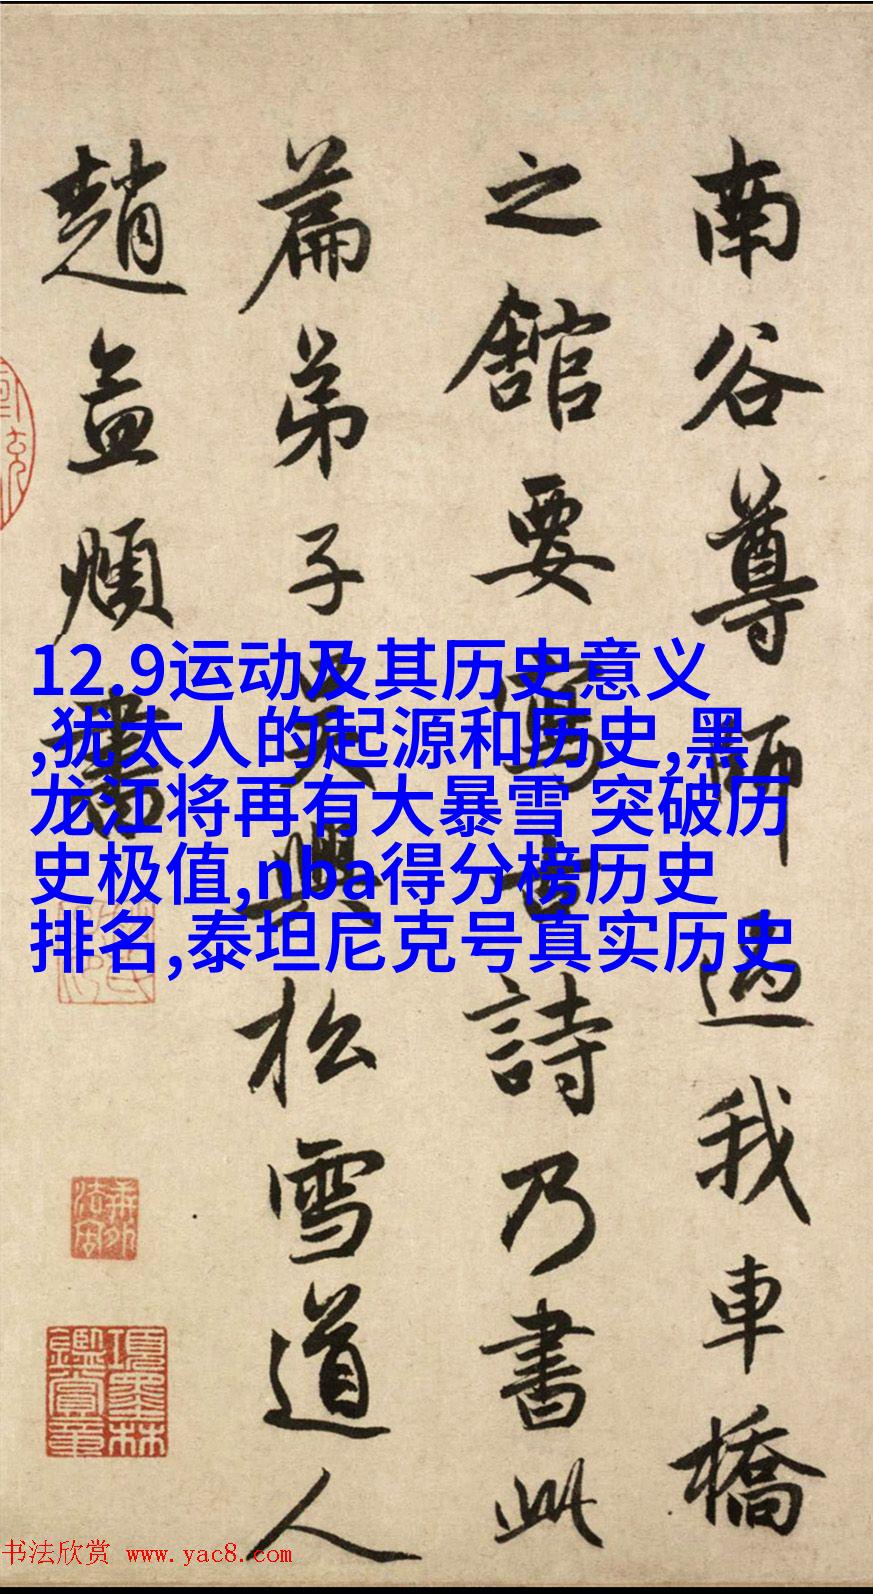 南谷尊師過我車橋
之舘要寫古詩乃書此
篇弟子吳興松雪道人
趙孟頫書
12.9运动及其历史意义
,犹太人的起源和历史,黑
龙江将再有大暴雪 突破历
史极值,nba得分榜历史
排名,泰坦尼克号真实历史
項墨林
鑑賞章
书法欣赏 www.yac8.com